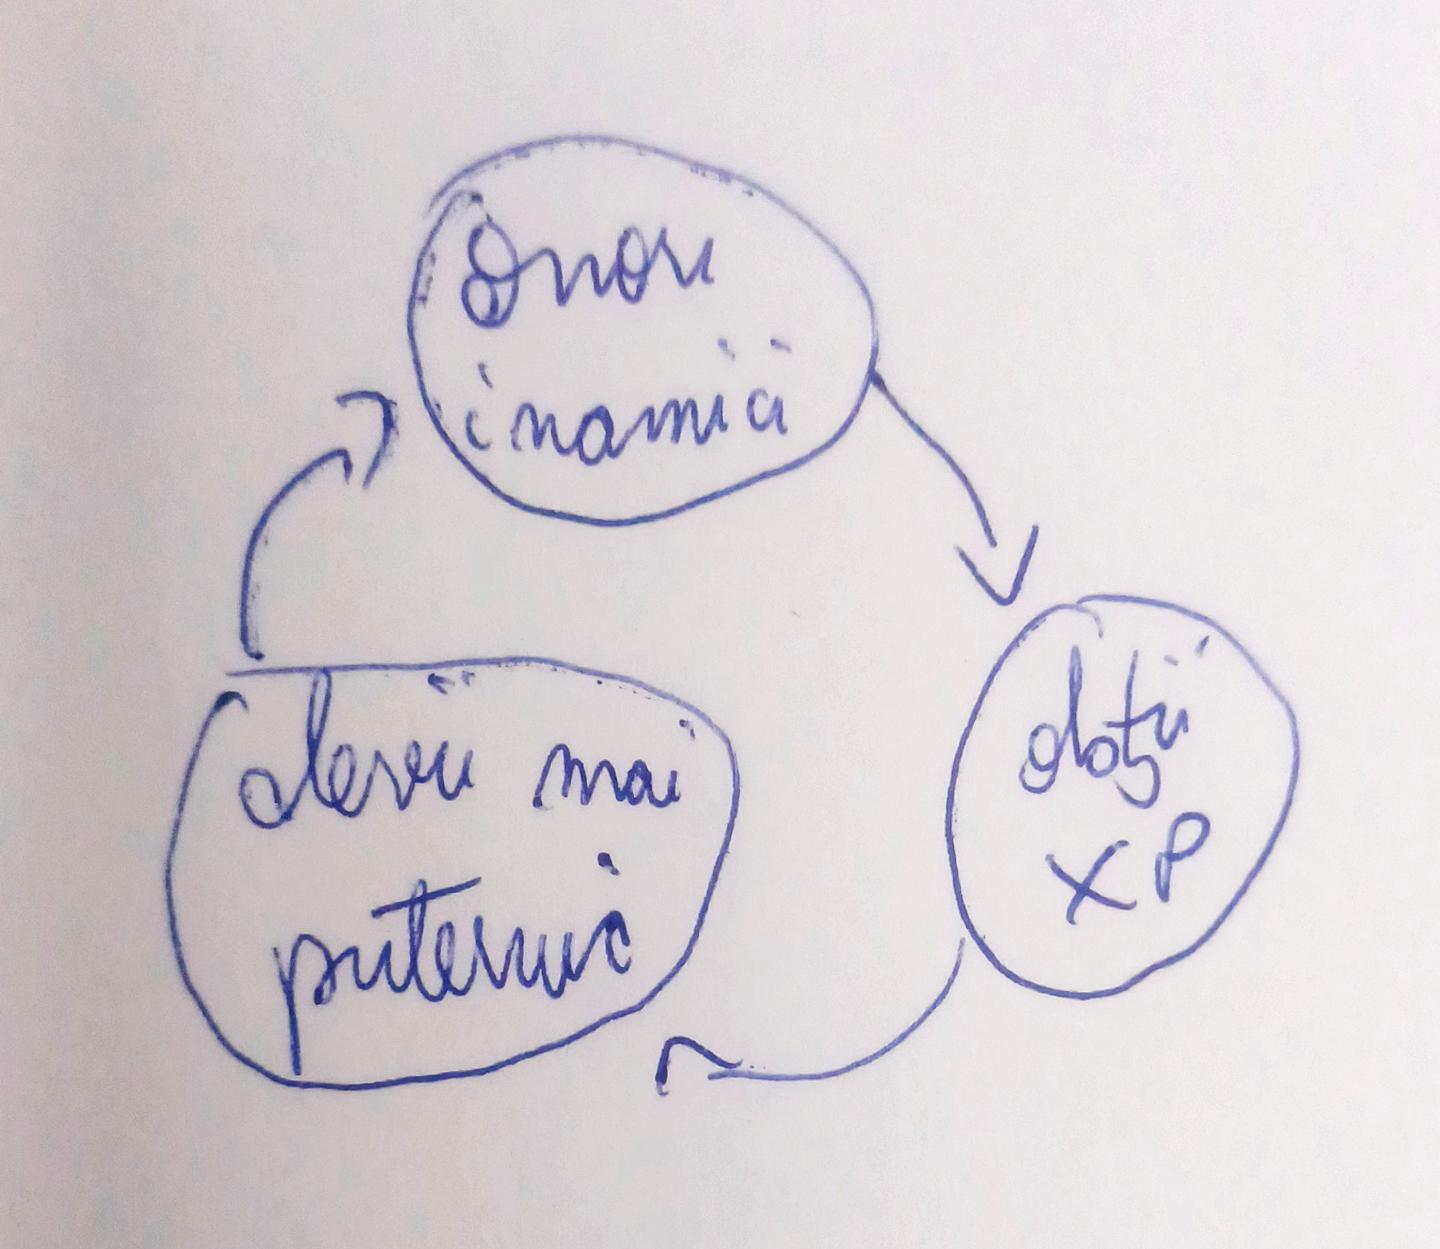 Omori
inamici
obții
XP
devii mai
puternic